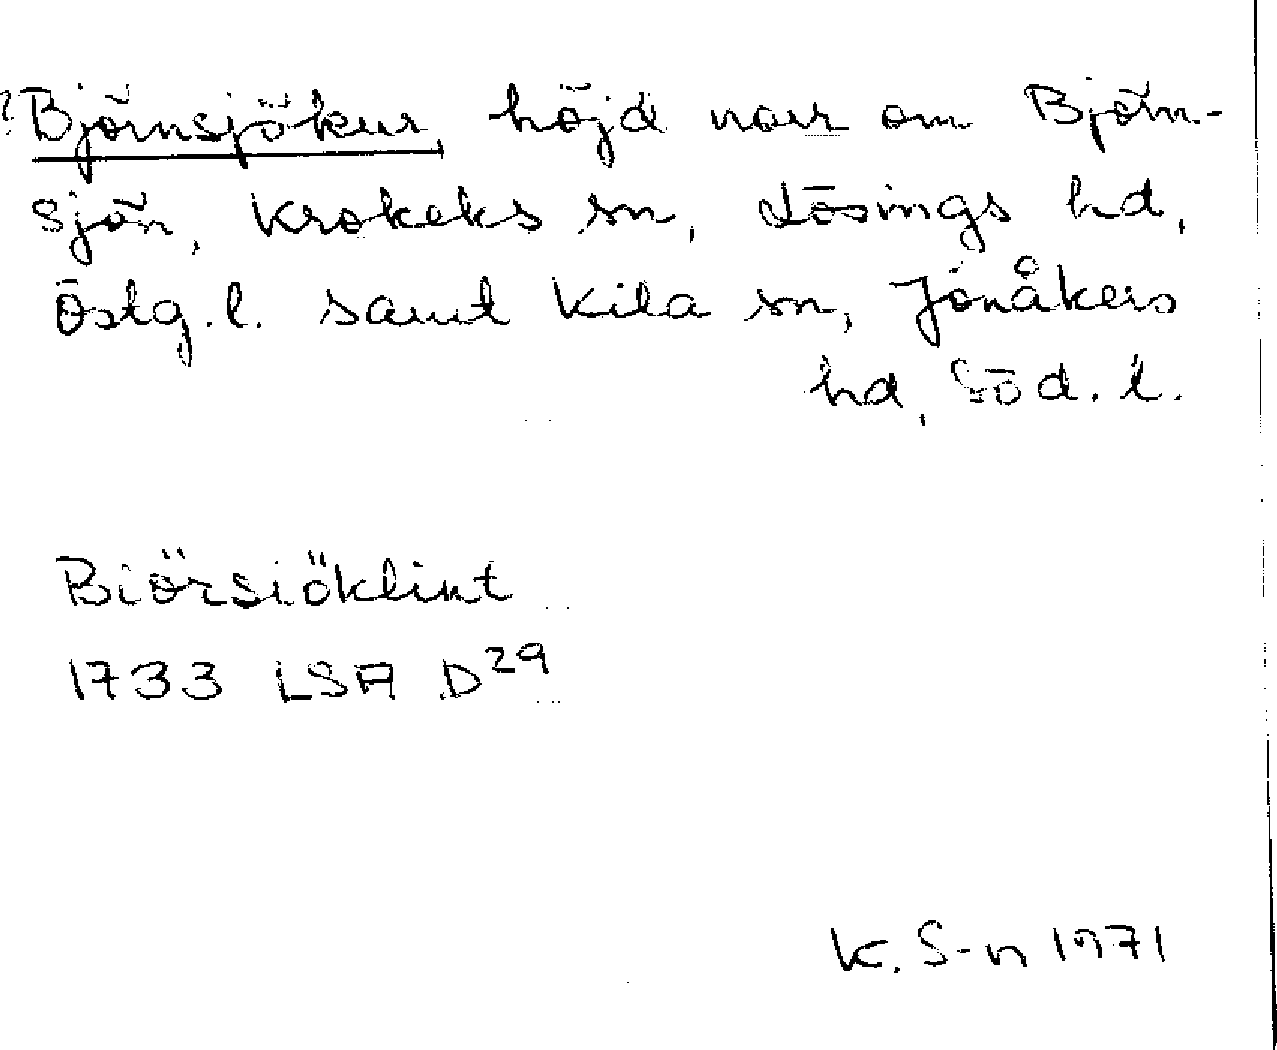 ?Björnsjökur, höjd norr om Björn-
sjön, Krokeks sn, Lösings hd,
Östg. l. samt Kila sn, Jönåkers
hd, Söd. l.
Biörsiöklint
1733 LSA D29
K. S-n 1971